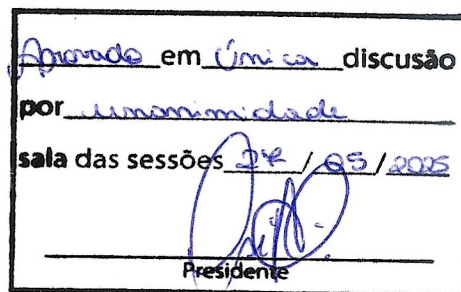 Aprovado em Única discusão
por unanimidade
sala das sessões 27 / 05 / 2025
Presidente